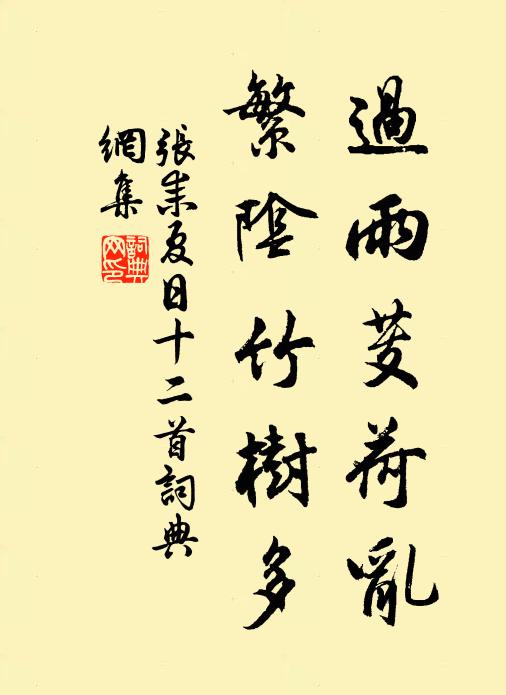 過雨芰荷亂
繁陰竹樹多
張耒夏日十二首詞典
網集
詞典網印